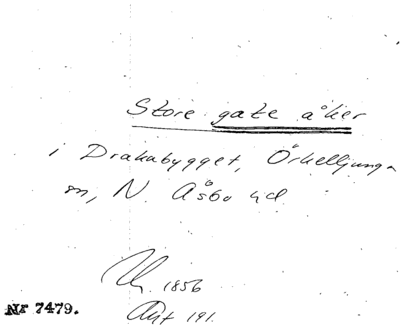 Store gate åker
i Drakabygget, Örkelljunga
sn, N. Åsbo hd
1856
Akt 191.
Nr 7479.